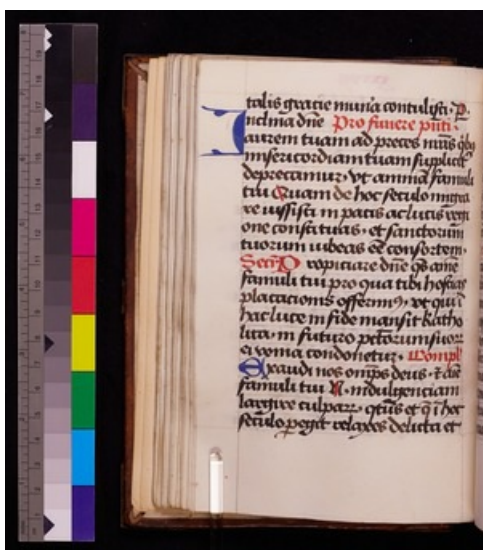 talis gracie mun̄a contulisti. P
nclina dn̄e Pro funere pn̄ti.
aurem tuam ad preces nr̄as qb9
misericordiam tuam supplicit̄
deprecamur. vt animā famuli
tui Quam de hoc seculo migra
re iussisti in pacis ac lucis regi
one constituas. et sanctorum
tuorum iubeas eē consortem.
Secr̄ P ropiciare dn̄e qs aīe
famuli tui pro qua tibi hostias
placacionis offerim9. vt qui ī
hac luce in fide mansit katho
lica. in futuro
ei vonia condonetur. Compl̄
Exaudi nos om̄ps deus. ⁊ aīe
famuli tui N. indulgenciam
largire culpar. et q̄ ī hoc
seculo ꝑegit delicta et